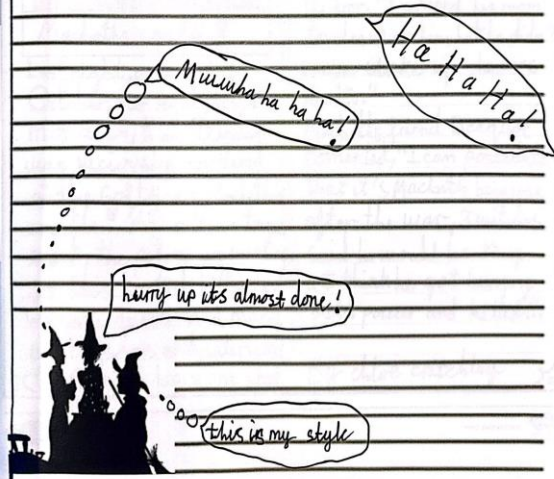 Ha Ha Ha!
Muuuha ha ha ha!
hurry up its almost done!
this is my style